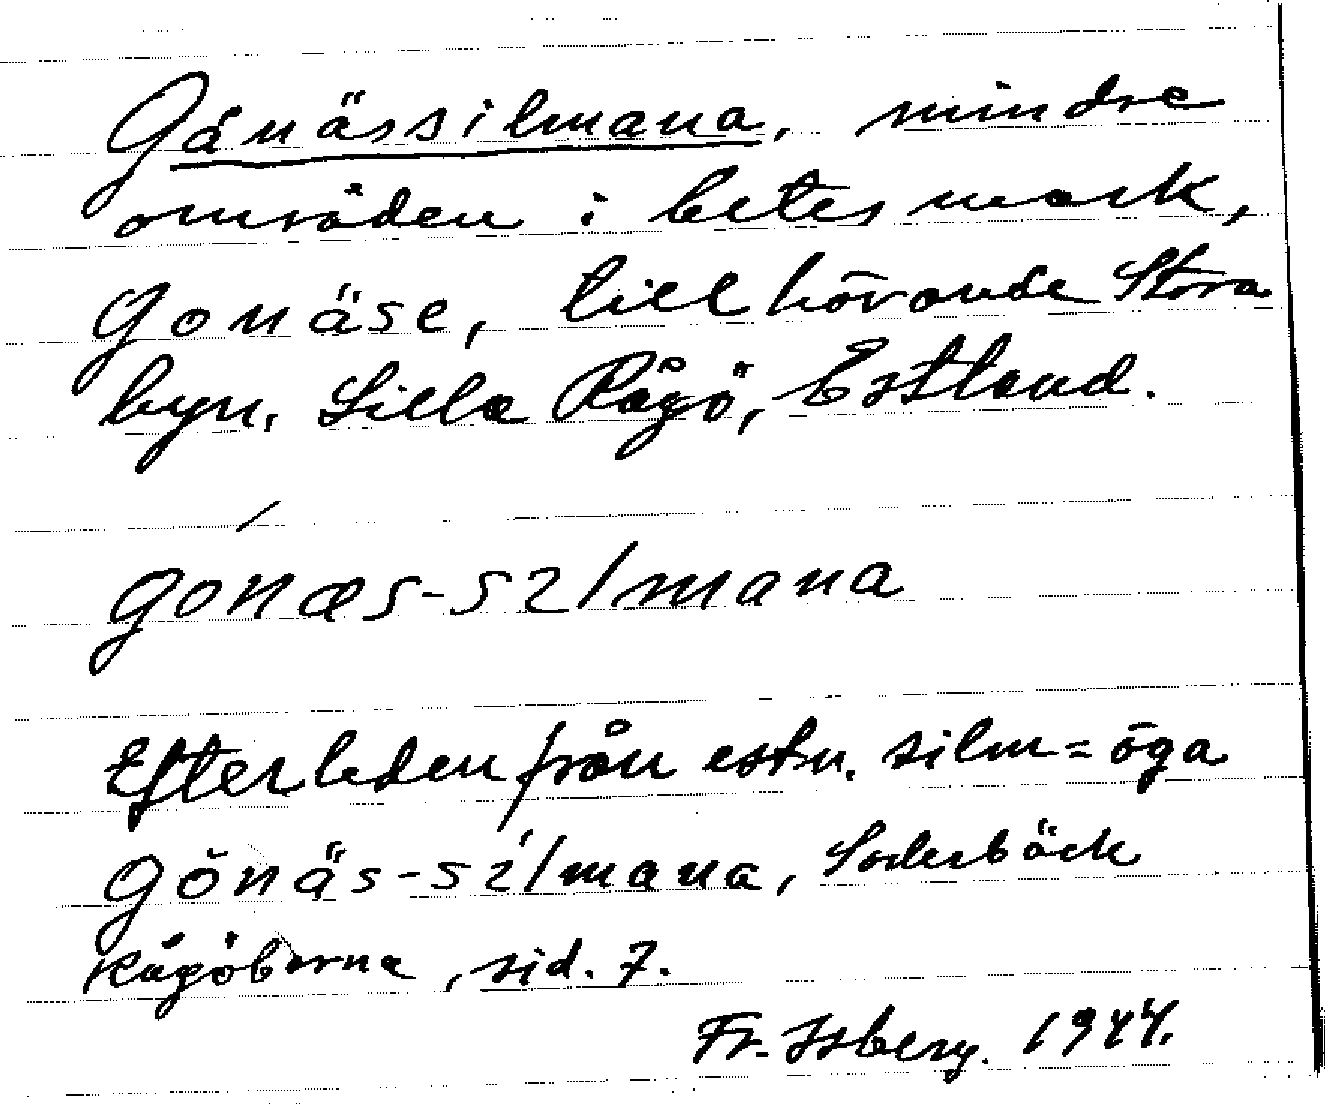 Gånässilmana, mindre
områden i betesmark,
Gonäse, tillhörande Stora
byn, Lilla Rågö, Estland.
gónæs-sılmana
Efterleden från estn. silm = öga
Gŏnäs-sílmana, Söderbäck
Rågöborna, sid. 7.
Fr. Isberg. 1944.